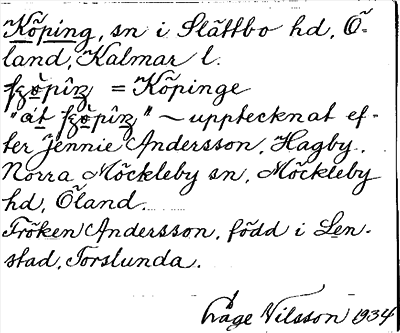 Köping, sn i Slättbo hd, Ö-
land, Kalmar l.
= Köpinge
"åt ~ upptecknat ef-
ter Jennie Andersson, Hagby,
Norra Möckleby sn, Möckleby
hd, Öland.
Fröken Andersson, född i Len-
stad, Torslunda.
Åge Nilsson 1934